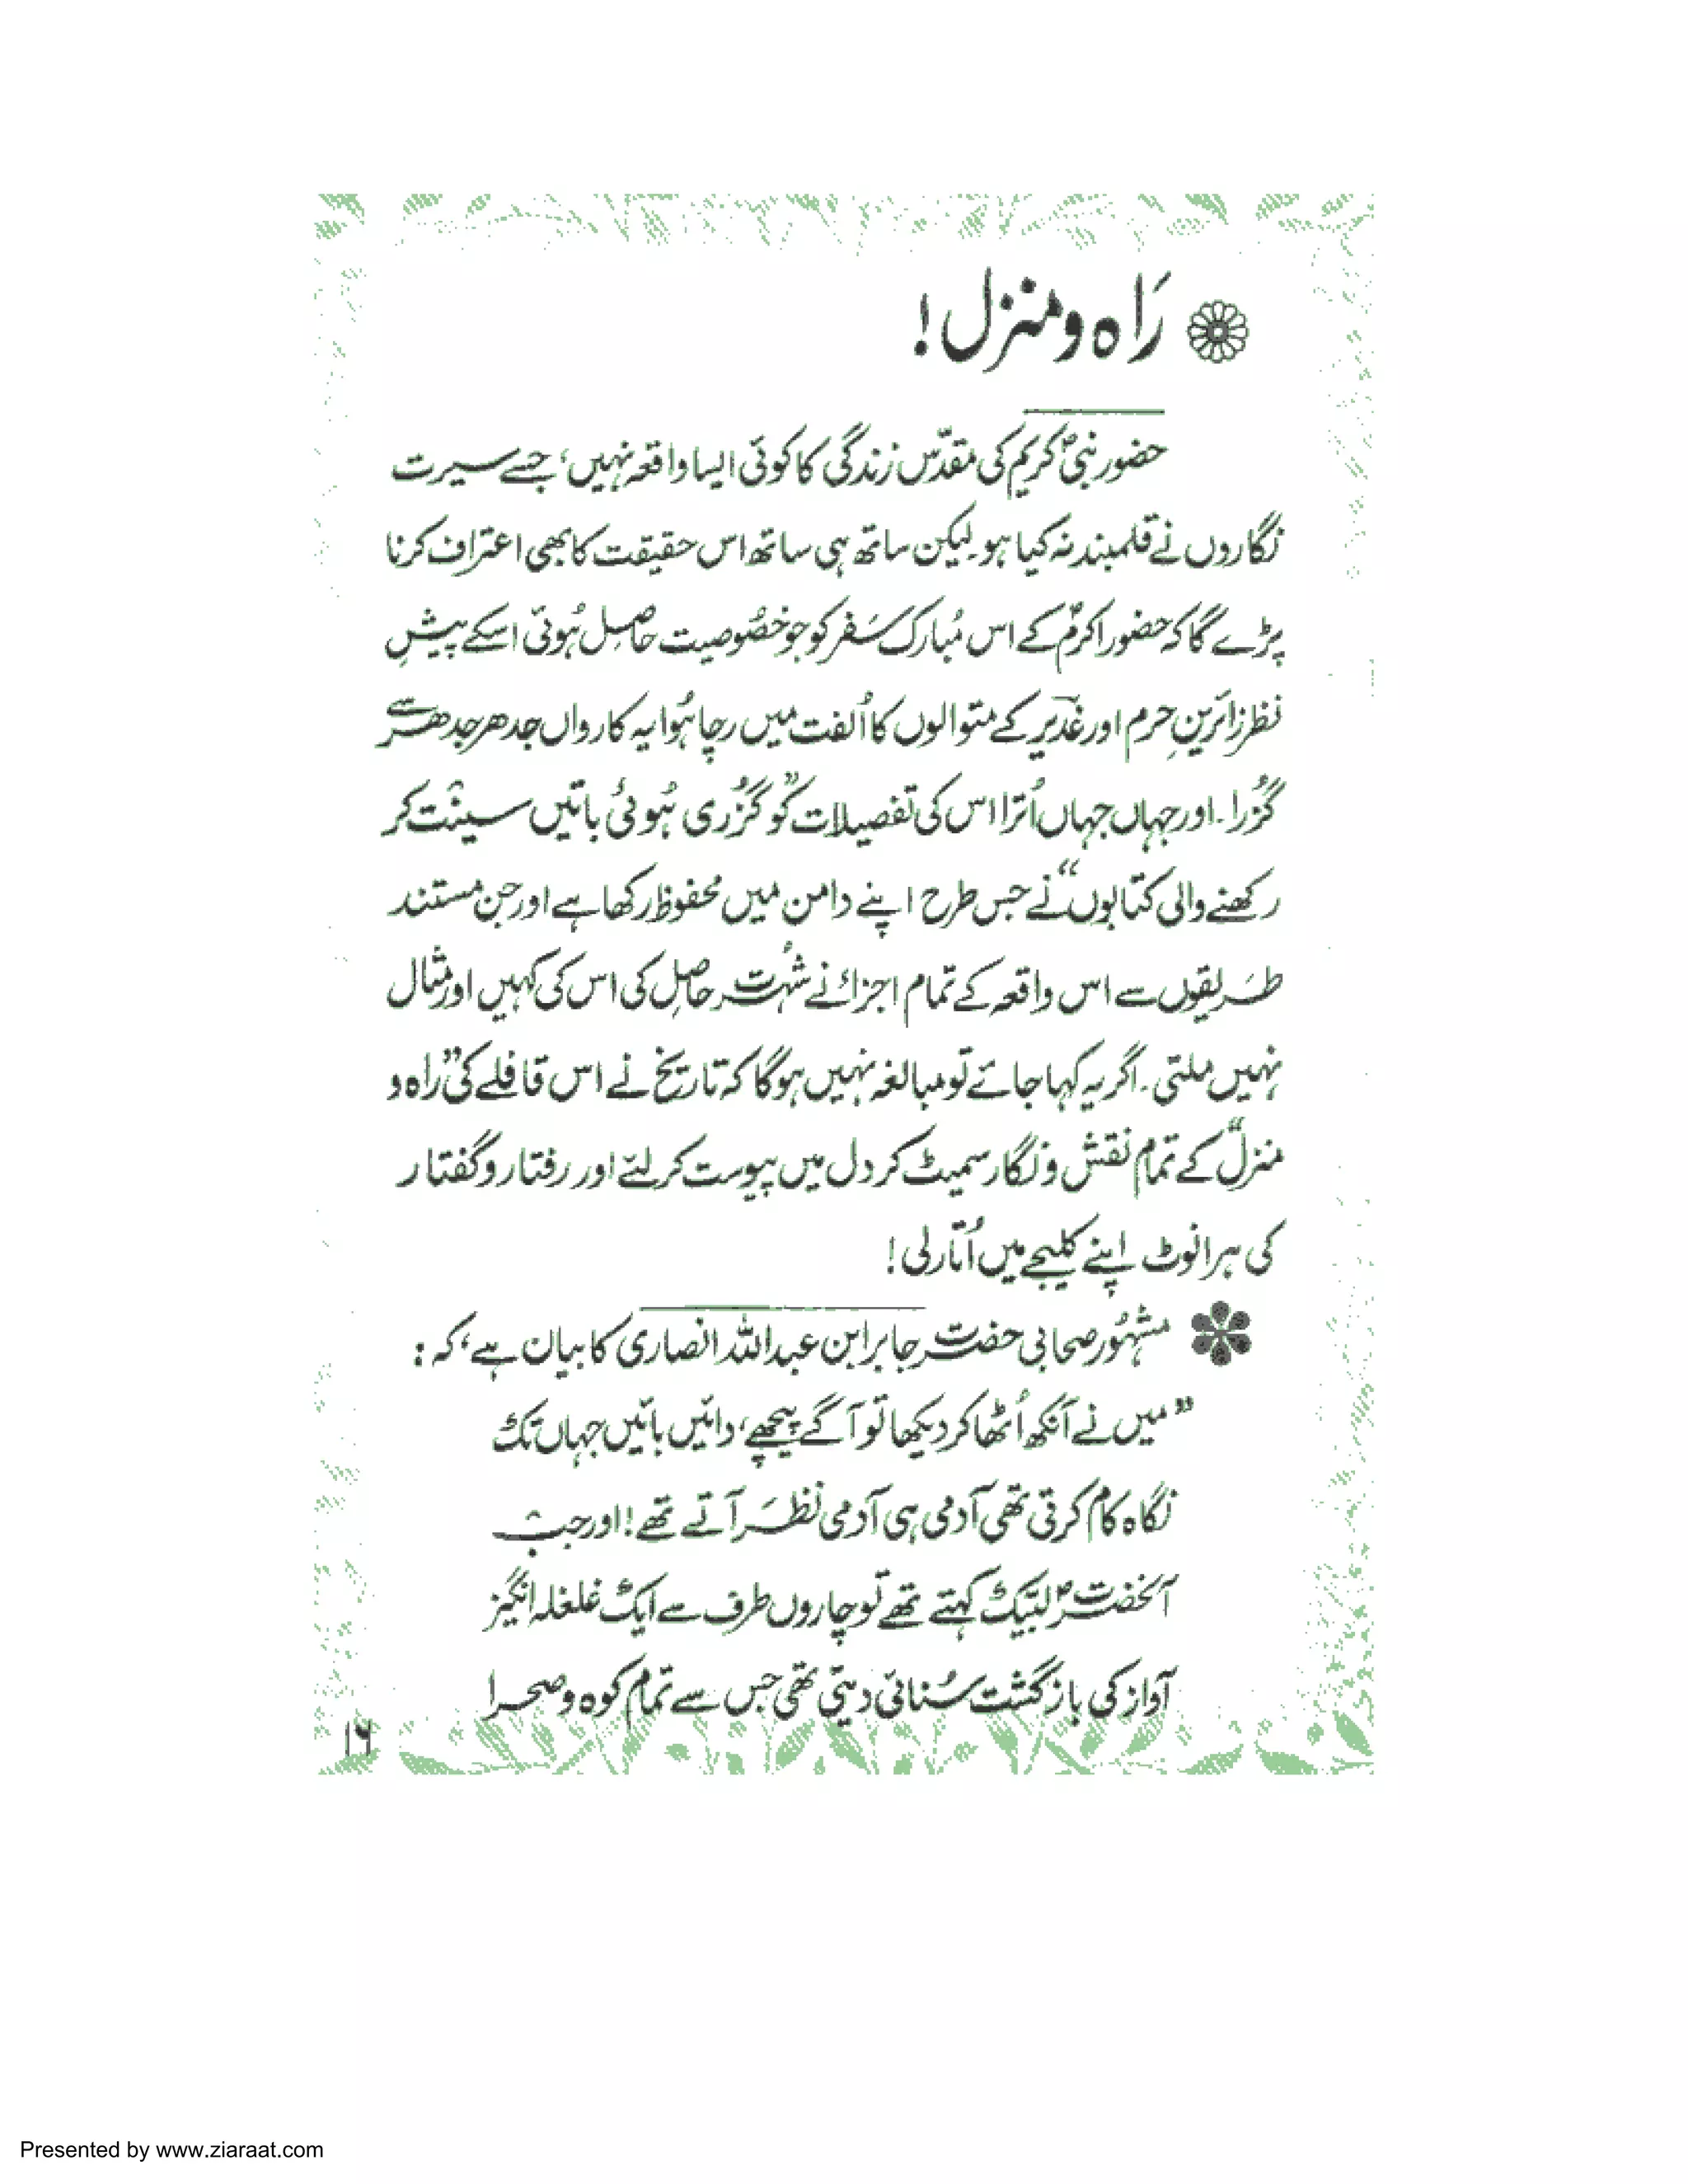 رَاہ و منزل !
حضور نبیؐ کریم کی مقدّس زندگی کا کوئی ایسا واقعہ نہیں، جسے سیرت
نگاروں نے قلمبند نہ کیا ہو۔ لیکن ساتھ ہی ساتھ اس حقیقت کا بھی اعتراف کرنا
پڑے گا کہ حضور اکرمؐ کے اس مُبارک سَفر کو جو خصُوصیت حاصِل ہُوئی اسکے پیشِ
نظر زائرینِ حرم اور غدیر کے متوالوں کا اُلفت میں رچا ہُوا یہ کارواں جدھر جدھر سے
گزُرا۔ اور جہاں جہاں اُترا اس کی تفصیلات کو ”گزُری ہُوئی باتیں سینت کر
رکھنے والی کتابوں“ نے جس طرح اپنے دامن میں محفوظ رکھا ہے اور جن مستند
طَریقوں سے اس واقعہ کے تمام اجزائے شہُرت حاصِل کی اس کی کہیں اور مثال
نہیں ملتی۔ اگر یہ کہا جائے تو مبالغہ نہیں ہوگا کہ تاریخ نے اس قافلے کی ”راہ و
منزل“ کے تمام نقش و نگار سمیٹ کر دل میں پیوست کر لئے اور رفتار و گفتار
کی ہر انوٹ اپنے کلیجے میں اُتار لی !
مشہُور صحابی حضرت جابر ابن عبداللہ انصاری کا بیان ہے، کہ :
”میں نے آنکھ اُٹھا کر دیکھا تو آگے پیچھے، دائیں بائیں جہاں تک
نگاہ کام کرتی تھی آدمی ہی آدمی نظَر آتے تھے! اور جب
آنحضرتؐ لبّیک کہتے تھے تو چاروں طرف سے ایک غلغلہ انگیز
آواز کی بازگشت سُنائی دیتی تھی جس سے تمام کوہ و صحرا
۱۶
Presented by www.ziaraat.com